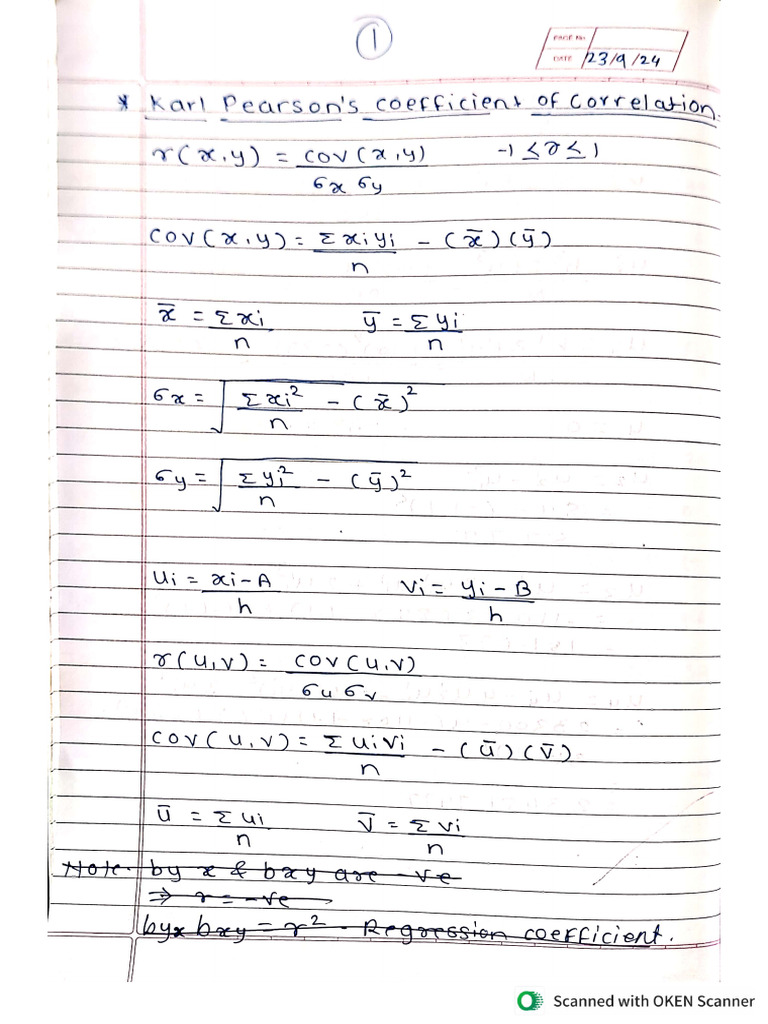 1
PAGE No.
DATE 23/9/24
* Karl Pearson's coefficient of correlation.
r(x,y) = cov(x,y) / σx σy    -1 ≤ r ≤ 1
cov(x,y) = Σxiyi / n - (x̄)(ȳ)
x̄ = Σxi / n    ȳ = Σyi / n
σx = √(Σxi² / n - (x̄)²)
σy = √(Σyi² / n - (ȳ)²)
ui = xi-A / h    vi = yi-B / h
r(u,v) = cov(u,v) / σu σv
cov(u,v) = Σuivi / n - (ū)(v̄)
ū = Σui / n    v̄ = Σvi / n
Note. by x & bxy are -ve
⇒ r = -ve
byx bxy = r² - Regression coefficient.
Scanned with OKEN Scanner